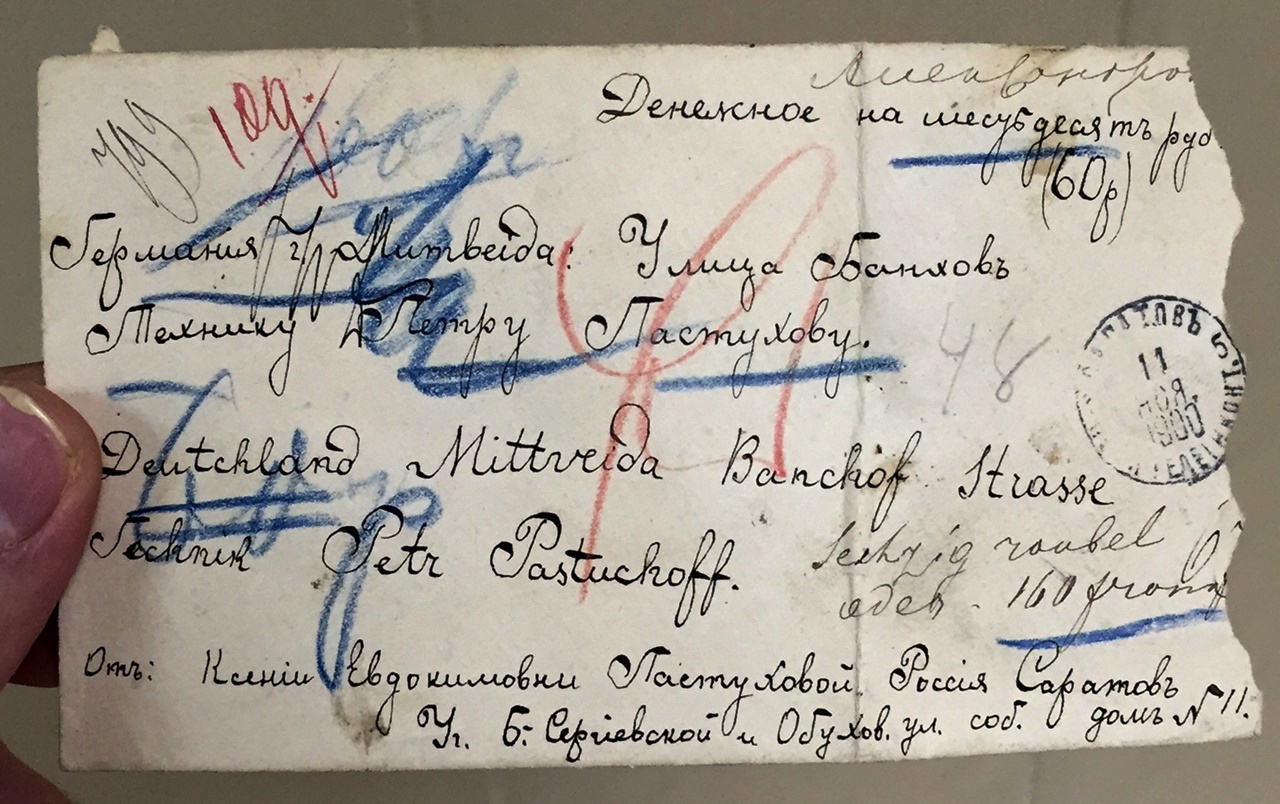 Александро
Денежное на шестьдесятъ руб
(60р)
109.
Германия г. Митвейда: Улица Банховъ
Технику Петру Пастухову.
48
11 НОЯ. 1900
Deutchland Mittveida Banchof Strasse
Technik Petr Pastuchoff.
Sechzig roubel
oder - 160 frank
Отъ: Ксеніи Евдокимовни Пастуховой. Россія Саратовъ
Уг. Б. Сергіевской и Обухов. ул. соб. домъ № 11.